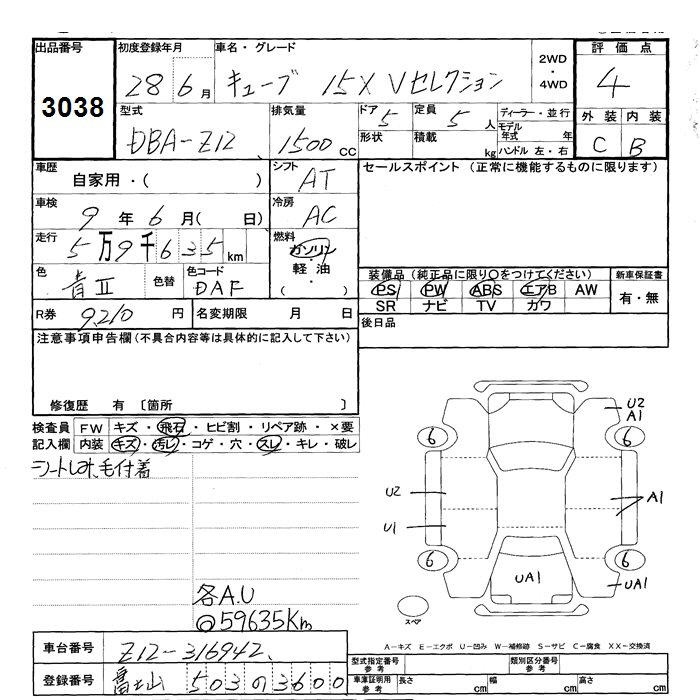 出品番号 初度登録年月 車名・グレード 2WD・4WD 評価点
3038 28 6月 キューブ 15X Vセレクション 4
型式 排気量 ドア 定員 ディーラー・並行 外装 内装
DBA-Z12 1500cc 5 5人 モデル年式 年 C B
形状 積載 kg ハンドル 左・右
車歴 シフト セールスポイント (正常に機能するものに限ります)
自家用・( ) AT
車検 冷房
9年6月( 日) AC
走行 燃料
5万9千635km ガソリン・軽油
( )
色 色替 色コード 装備品 (純正品に限り○をつけてください) 新車保証書
青II DAF PS PW ABS エアB AW 有・無
SR ナビ TV カワ
R券 9210円 名変期限 月 日 後日品
注意事項申告欄(不具合内容等は具体的に記入して下さい)
修復歴 有 〔箇所 〕
検査員 FW キズ・飛石・ヒビ割・リペア跡・×要
記入欄 内装 キズ・汚レ・コゲ・穴・スレ・キレ・破レ
毛付着
U2
A1
6 6
U2 A1
U1
6 6
UA1 UA1
各A.U
@59635Km
スペア
A-キズ E-エクボ U-凹み W-補修跡 S-サビ C-腐食 XX-交換済
車台番号 Z12-316942
型式指定番号 参考 類別区分番号 参考
登録番号 富士山 503 の 3600
車庫証明用 参考 長さ cm 幅 cm 高さ cm